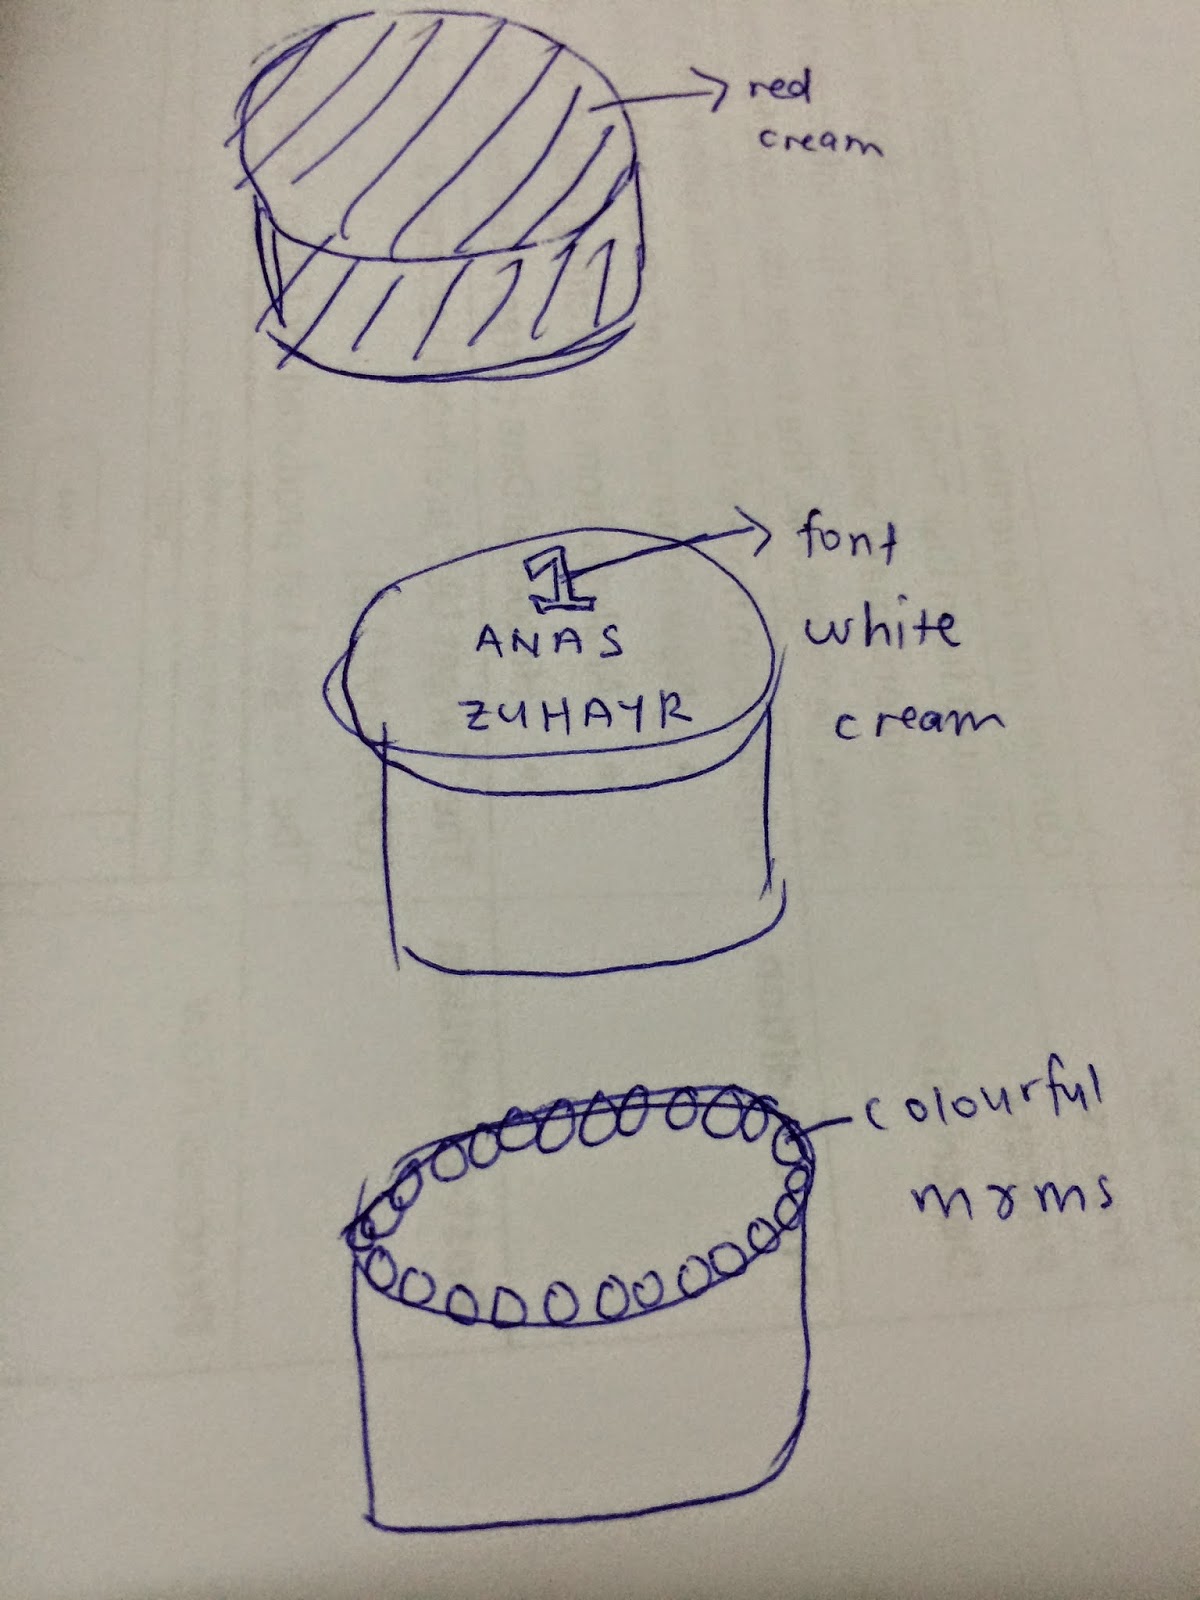 red
cream
1
font
white
cream
ANAS
ZUHAYR
colourful
mrms